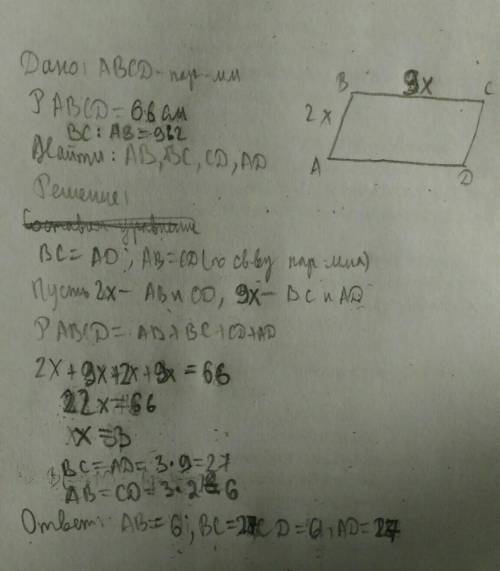 Дано: ABCD - пар-мм
P ABCD = 66 см
BC : AB = 9:2
Найти: AB, BC, CD, AD
Решение:
Составим уравнение
BC = AD, AB = CD (по св-ву пар-мма)
Пусть 2x - AB и CD, 9x - BC и AD
P ABCD = AB + BC + CD + AD
2x + 9x + 2x + 9x = 66
22x = 66
x = 3
BC = AD = 3 · 9 = 27
AB = CD = 3 · 2 = 6
Ответ: AB = 6, BC = 27, CD = 6, AD = 27
B 9x C
2x
A D